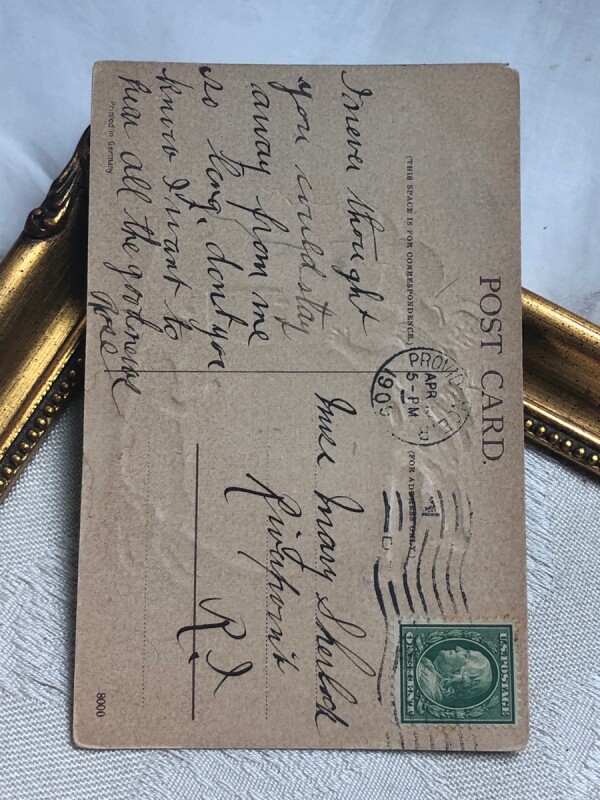 POST CARD.
(THIS SPACE IS FOR CORRESPONDENCE.)
(FOR ADDRESS ONLY.)
I never thought
you could stay
away from me
so long, dont you
know I want to
hear all the good news
Rose
Miss Mary Sherlock
Riverpoint
R. I
APR
5 - PM
1909
U.S. POSTAGE
ONE CENT
Printed in Germany
8000